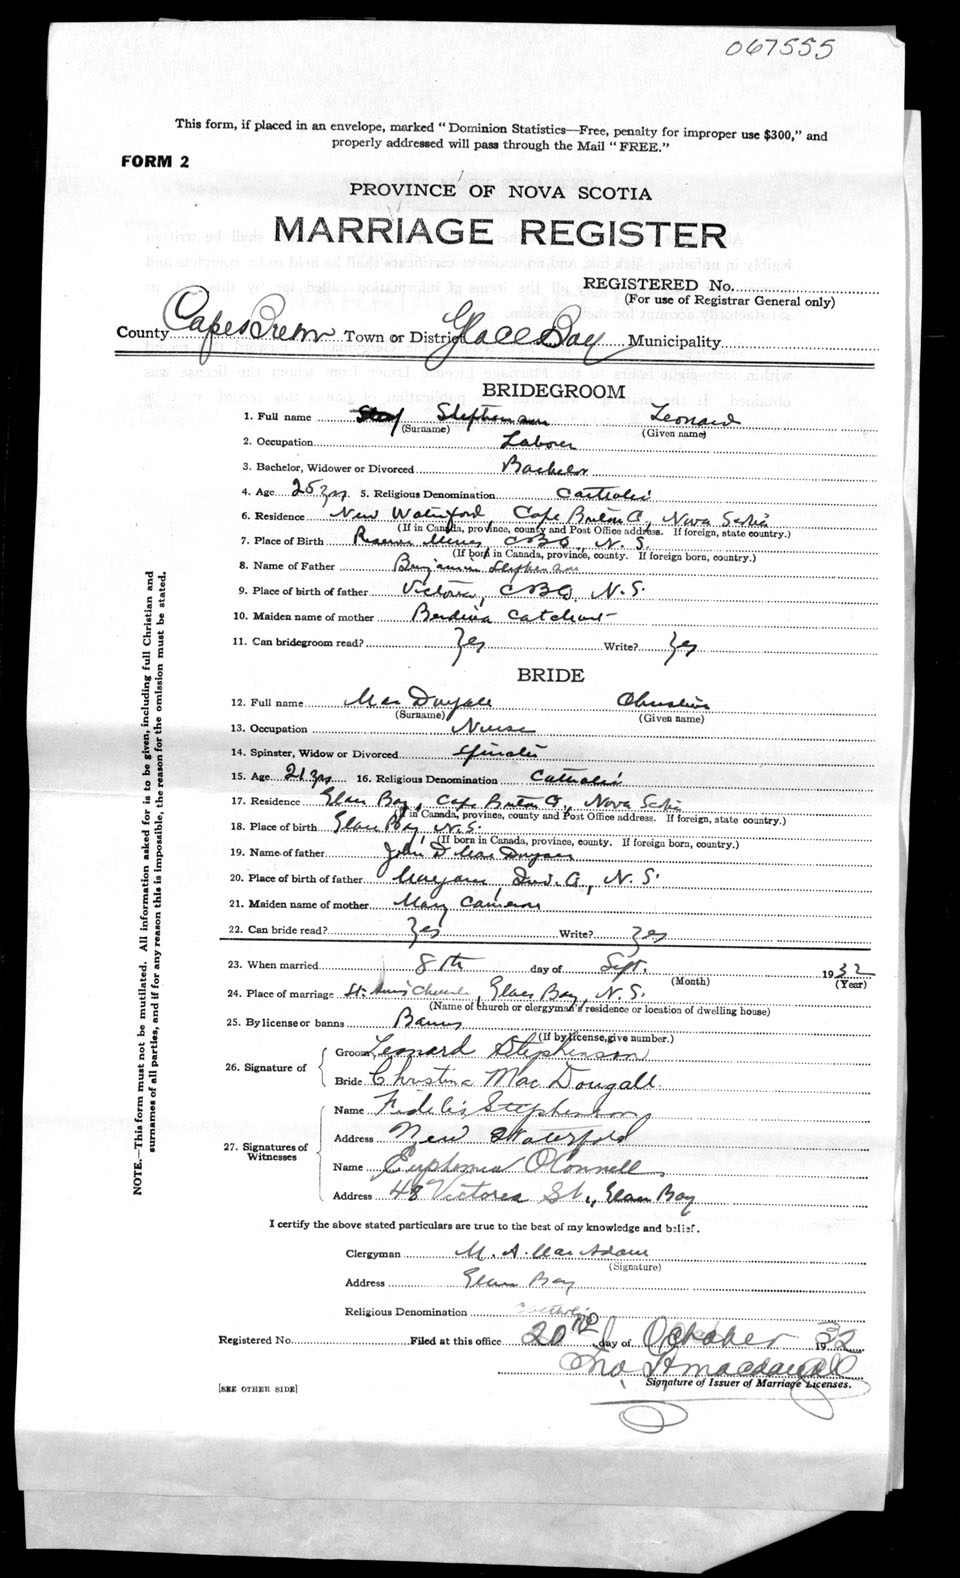 067555
This form, if placed in an envelope, marked "Dominion Statistics—Free, penalty for improper use $300," and
properly addressed will pass through the Mail "FREE."
FORM 2
PROVINCE OF NOVA SCOTIA
MARRIAGE REGISTER
REGISTERED No.
(For use of Registrar General only)
County Town or District Glace Bay Municipality
BRIDEGROOM
1. Full name Stephenson Leonard
(Surname) (Given name)
2. Occupation Laborer
3. Bachelor, Widower or Divorced Bachelor
4. Age 25 yrs. 5. Religious Denomination Catholic
6. Residence New Waterford, Cape Breton Co., Nova Scotia
(If in Canada, province, county and Post Office address. If foreign, state country.)
7. Place of Birth Reserve Mines, CBCo, N.S.
(If born in Canada, province, county. If foreign born, country.)
8. Name of Father Benjamin Stephenson
9. Place of birth of father Victoria, CBCo, N.S.
10. Maiden name of mother
11. Can bridegroom read? Yes Write? Yes
BRIDE
12. Full name MacDougall Christina
(Surname) (Given name)
13. Occupation Nurse
14. Spinster, Widow or Divorced Spinster
15. Age 21 yrs 16. Religious Denomination Catholic
17. Residence Glace Bay, Cape Breton Co., Nova Scotia
(If in Canada, province, county and Post Office address. If foreign, state country.)
18. Place of birth Glace Bay N.S.
(If born in Canada, province, county. If foreign born, country.)
19. Name of father John D MacDougall
20. Place of birth of father Margaree, Inv. Co., N.S.
21. Maiden name of mother Mary Cameron
22. Can bride read? Yes Write? Yes
23. When married 8th day of Sept. 1932
(Month) (Year)
24. Place of marriage St. Ann's Church, Glace Bay, N.S.
(Name of church or clergyman's residence or location of dwelling house)
25. By license or banns Banns
(If by license, give number.)
26. Signature of Groom Leonard Stephenson
Bride Christina MacDougall
27. Signatures of Witnesses Name Fidelis Stephenson
Address New Waterford
Name Euphemia O'Connell
Address 48 Victoria St., Glace Bay
I certify the above stated particulars are true to the best of my knowledge and belief.
Clergyman M. A. MacAdam
(Signature)
Address Glace Bay
Religious Denomination Catholic
Registered No. Filed at this office 20 day of October 1932
Jno MacDougall
Signature of Issuer of Marriage Licenses.
[SEE OTHER SIDE]
NOTE.—This form must not be mutilated. All information asked for is to be given, including full Christian and
surnames of all parties, and if for any reason this is impossible, the reason for the omission must be stated.